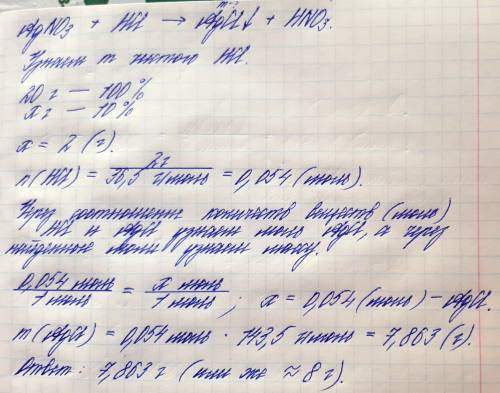 AgNO₃ + HCl → AgCl↓ + HNO₃
m-?
Узнаем m чистого HCl.
20 г — 100%
x г — 10%
x = 2 (г).
n(HCl) = 2г / 36,5 г/моль = 0,054 (моль).
Через соотношение количеств веществ (моль)
HCl и AgCl узнаем моль AgCl, а через
найденное моли узнаем массу.
0,054 моль / 1 моль = x моль / 1 моль ; x = 0,054 (моль) – AgCl.
m(AgCl) = 0,054 моль · 143,5 г/моль = 7,863 (г).
Ответ: 7,863 г (или же ≈ 8 г).